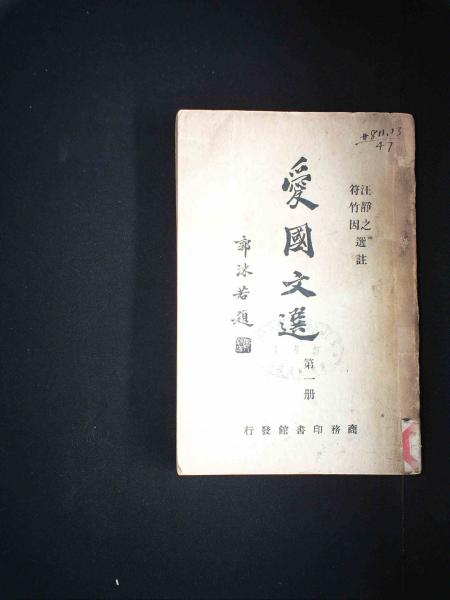 #811.13
47
汪靜之
符竹因
選註
愛國文選
第一册
郭沫若題
商務印書館發行